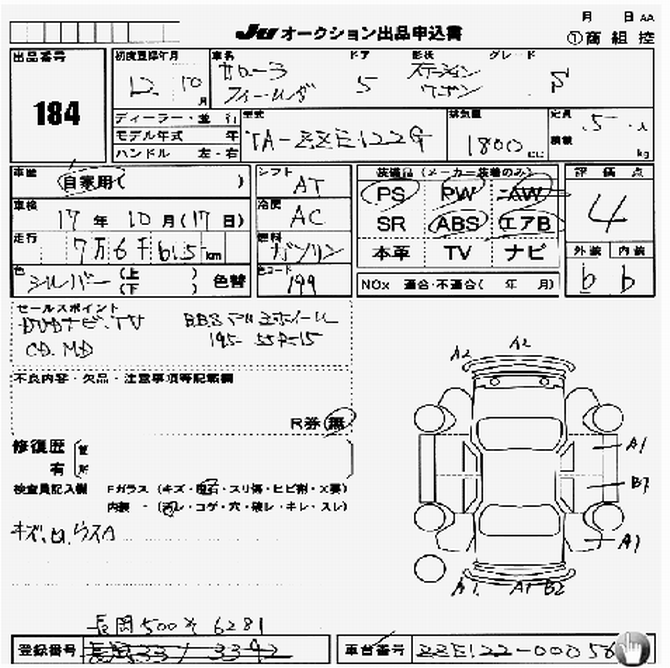 月 日 AA
JU オークション出品申込書
①商 組 控
出品番号
184
初度登録年月
12. 10 月
車名
カローラ
フィールダ
ドア
5
形状
ステーション
ワゴン
グレード
S
ディーラー・並 行
モデル年式 年
ハンドル 左・右
型式
TA-ZZE122G
排気量
1800 cc
定員
5 人
積載
kg
車歴
自家用( )
車検
17 年 10 月(17 日)
走行
7万6千615 km
色
シルバー (上 )
(下 ) 色替
シフト
AT
冷房
AC
燃料
ガソリン
色コード
199
装備品(メーカー装着のみ)
PS PW AW
SR ABS エアB
本革 TV ナビ
NOx 適合・不適合( 年 月)
評 価 点
4
外装 内装
b b
セールスポイント
DVDナビ・TV BBSアルミホイール
CD.MD 195-55R-15
不良内容・欠品・注意事項等記載欄
R券 無
修復歴
有
検査員記入欄
Fガラス(キズ・飛石・スリ傷・ヒビ割・X要)
内装 -(汚レ・コゲ・穴・破レ・キレ・スレ)
キズ、凹、ウスA
A2 A2
A1
B7
A1
A1 A1 B2
長岡500そ6281
登録番号
長岡33 3342
車台番号
ZZE122-00056